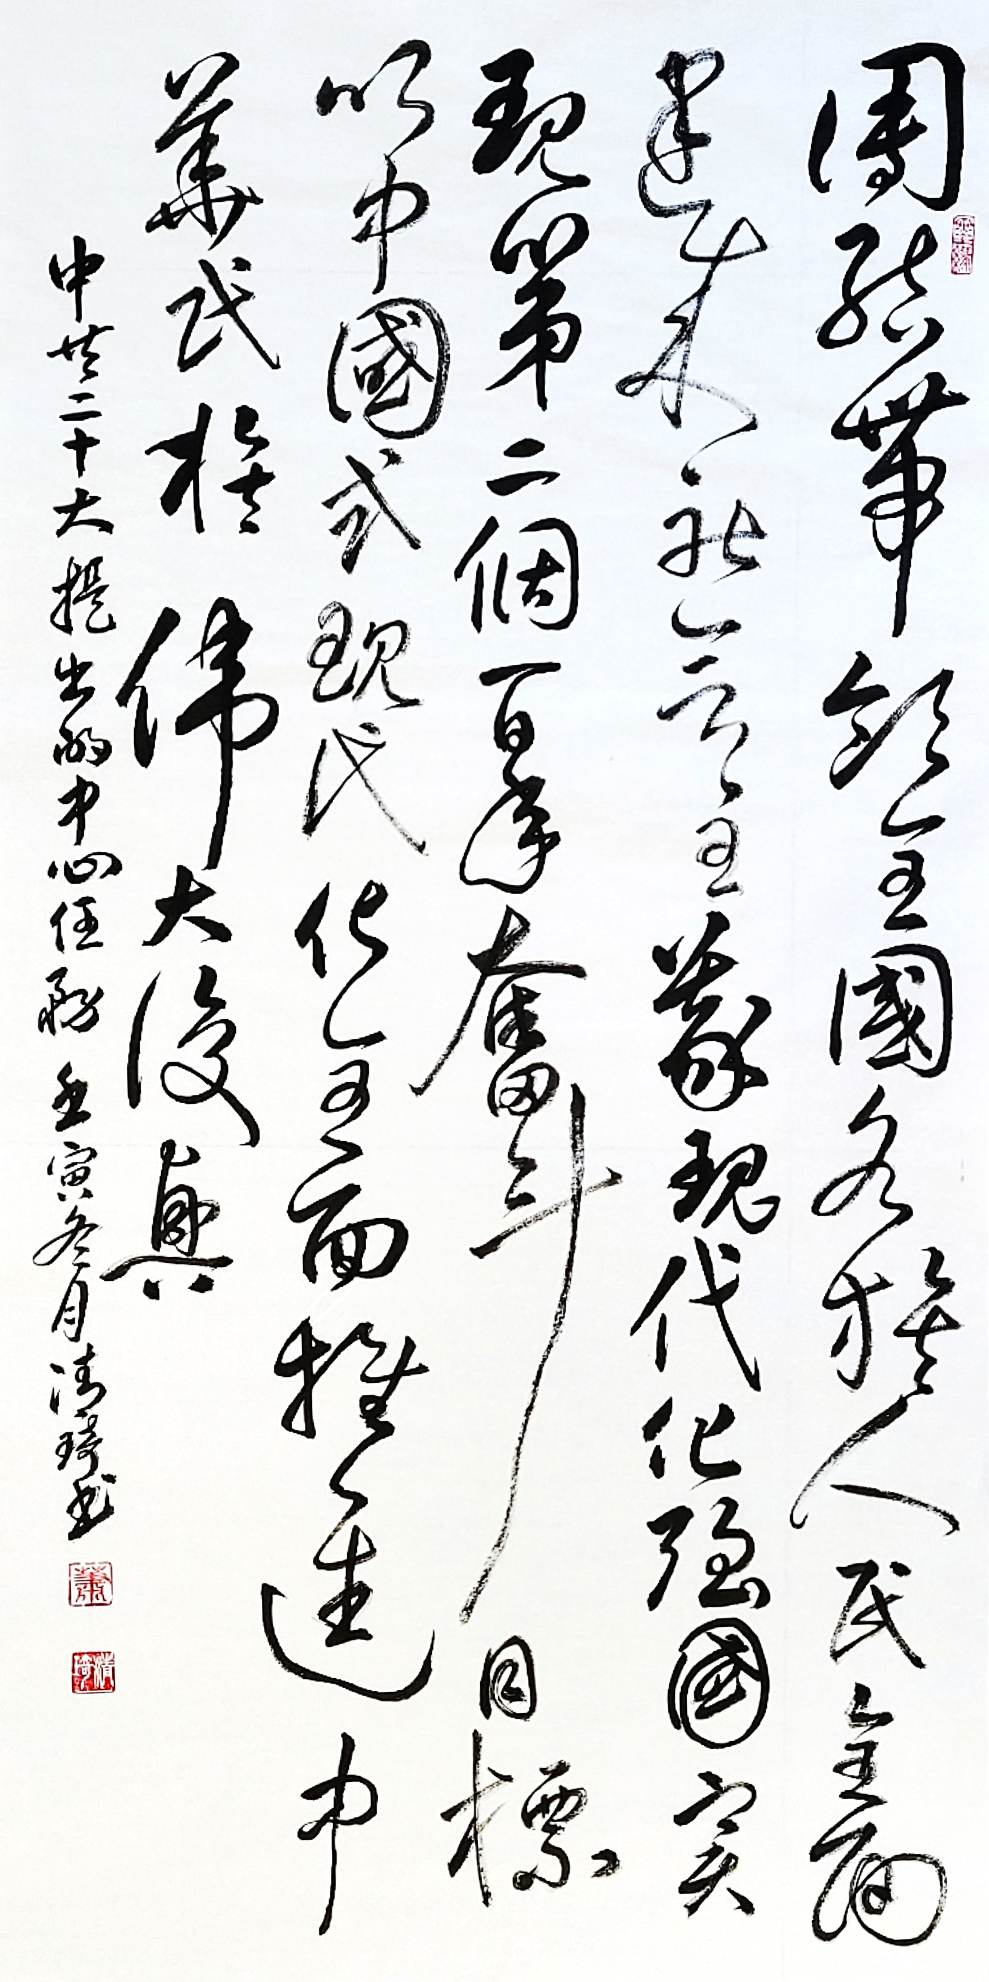 團結帶領全國各族人民全面
建成社會主義現代化强國實
現第二個百年奮斗目標
以中國式現代化全面推進中
華民族偉大復興
中共二十大提出的中心任務 壬寅冬月清琦书